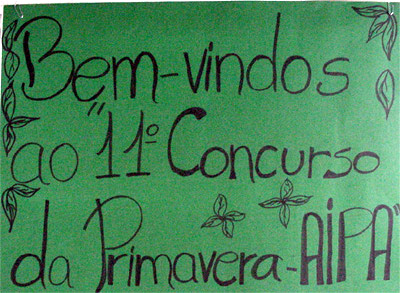 Bem-vindos
ao "11º Concurso
da Primavera-AIPA"